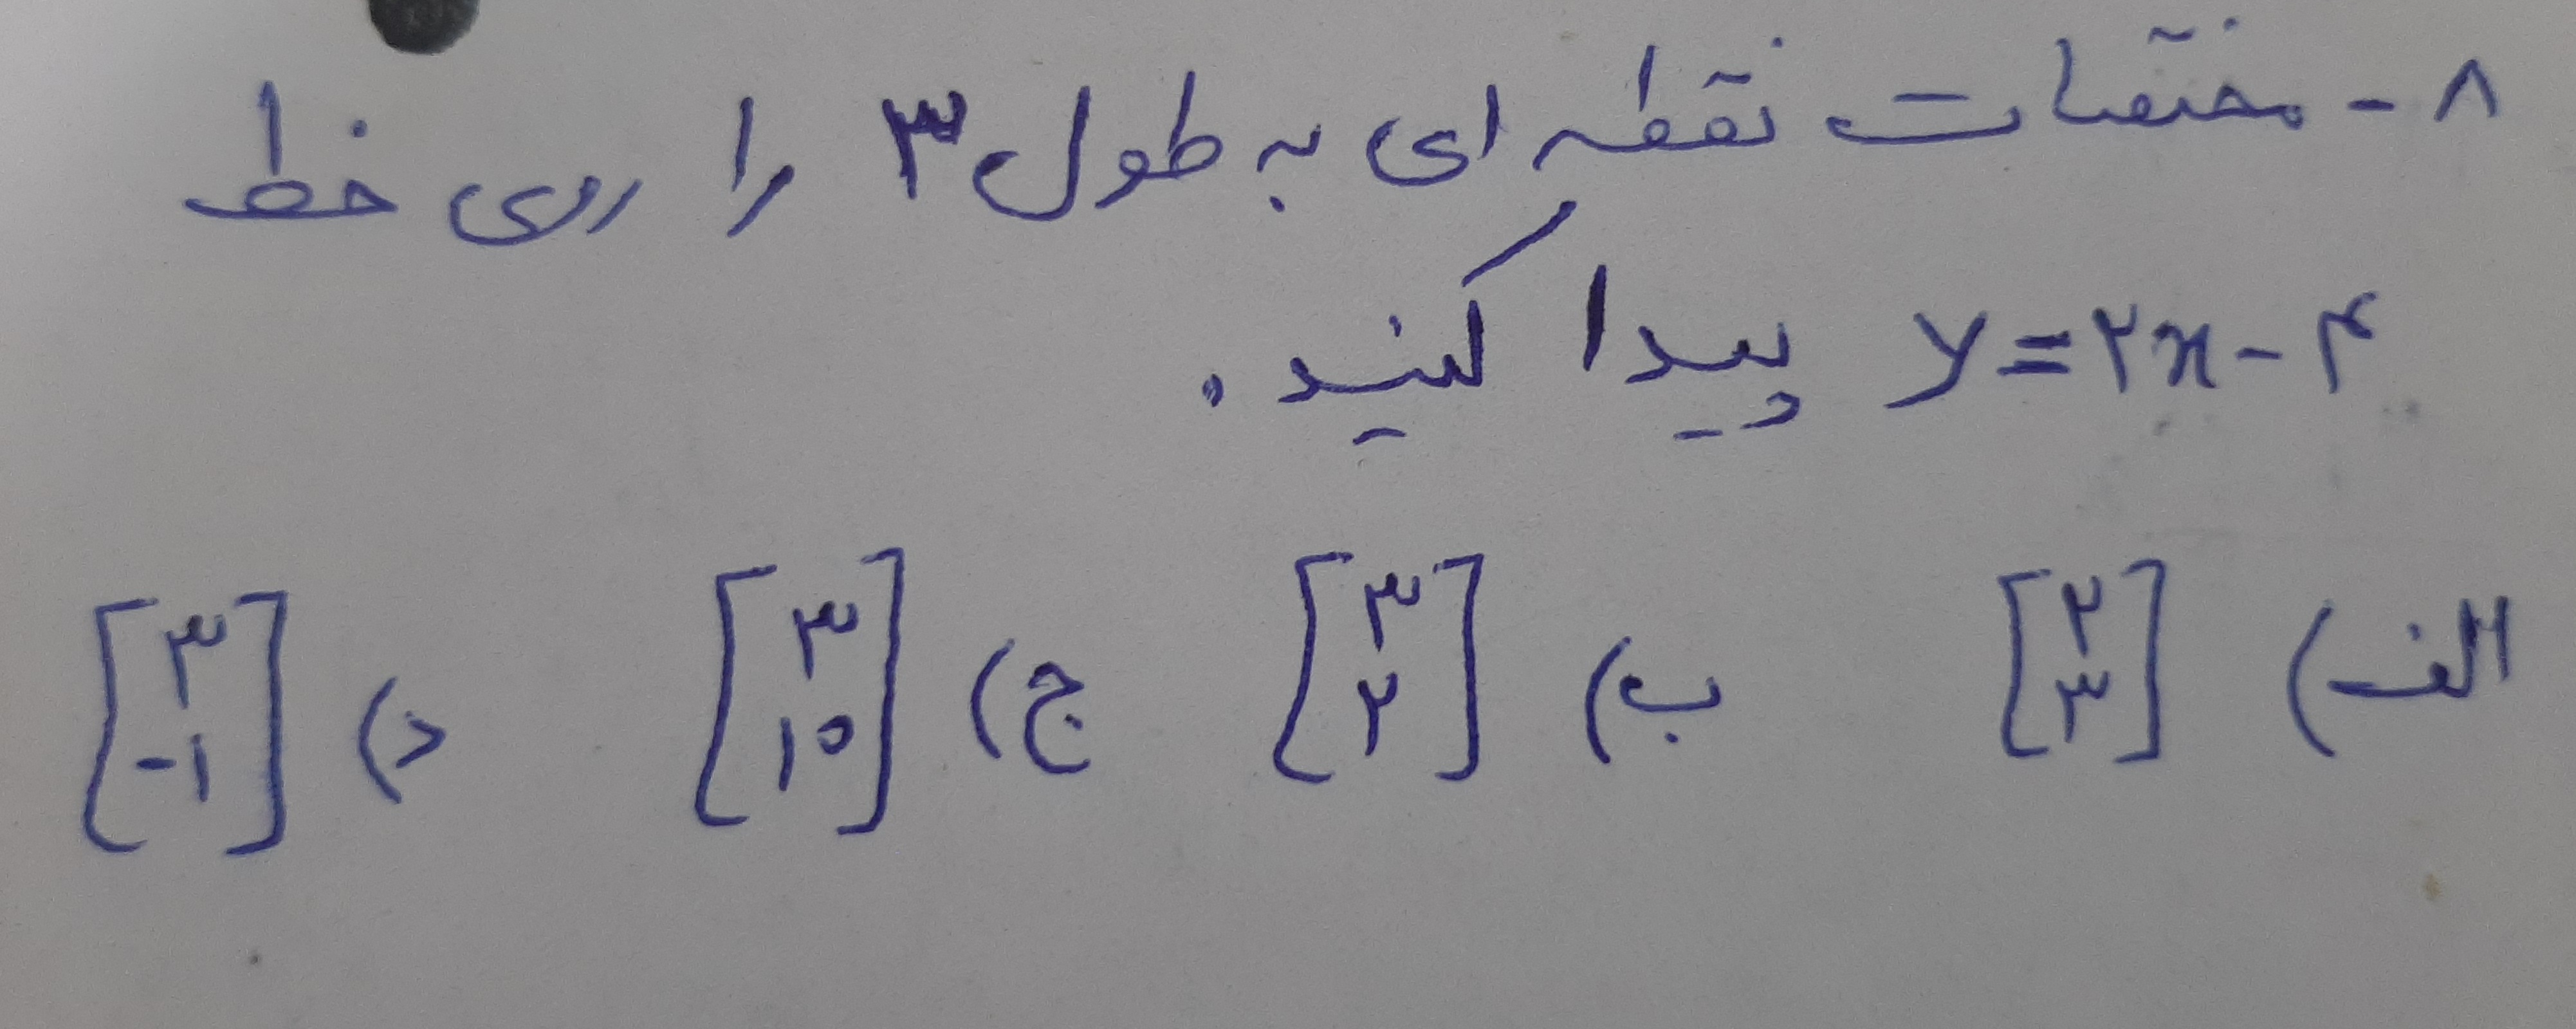 ۸- مختصات نقطه ای به طول ۳ را روی خط
y=۲x-۴ پیدا کنید.
الف) [۲ ۳] ب) [۳ ۲] ج) [۳ ۱۰] د) [۳ -۱]